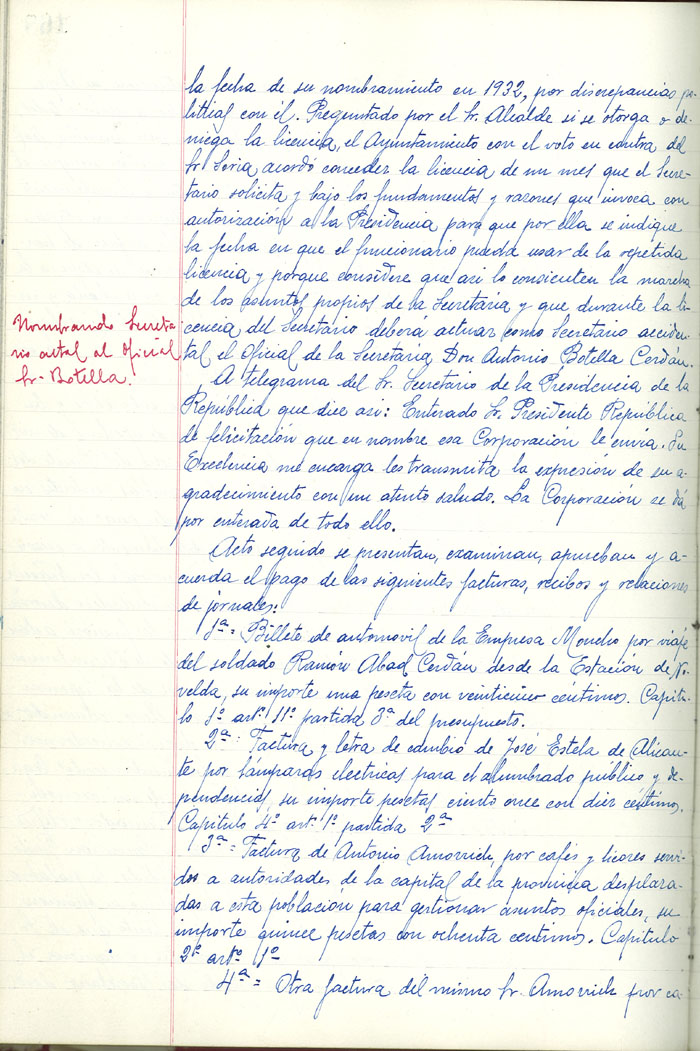 la fecha de su nombramiento en 1932, por discrepancias po-
liticas con él. Preguntado por el Sr. Alcalde si se otorga o de-
niega la licencia, el Ayuntamiento con el voto en contra del
Sr. Soria acordó conceder la licencia de un mes que el Secre-
tario solicita y bajo los fundamentos y razones que invoca con
autorización a la Presidencia para que por ella se indique
la fecha en que el funcionario pueda usar de la repetida
licencia y porque considere que asi lo consienten la marcha
de los asuntos propios de la Secretaria y que durante la li-
cencia del Secretario deberá actuar como Secretario acciden-
tal el Oficial de la Secretaria Don Antonio Botella Cerdán.
Nombrando Secreta
rio actal al Oficial
Sr. Botella.
A telegrama del Sr. Secretario de la Presidencia de la
República que dice asi: Enterado Sr. Presidente República
de felicitación que en nombre esa Corporación le envia. Su
Excelencia me encarga les transmita la expresión de su a-
gradecimiento con un atento saludo. La Corporación se dá
por enterada de todo ello.
Acto seguido se presentan, examinan, aprueban y a-
cuerda el pago de las siguientes facturas, recibos y relaciones
de jornales:
1ª = Billete de automovil de la Empresa Moncho por viaje
del soldado Ramón Abad Cerdán desde la Estación de No-
velda, su importe una peseta con veinticinco centimos. Capitu-
lo 1º artº 11º partida 3ª del presupuesto.
2ª = Factura y letra de cambio de José Estela de Alican-
te por lámparas electricas para el alumbrado público y de-
pendencias, su importe pesetas ciento once con diez céntimos.
Capitulo 4º artº 1º partida 2ª
3ª = Factura de Antonio Amorrich, por cafés y licores servi-
dos a autoridades de la capital de la provincia desplaza-
das a esta población para gestionar asuntos oficiales, su
importe quince pesetas con ochenta centimos. Capitulo
2º artº 1º
4ª = Otra factura del mismo Sr. Amorrich por ca-